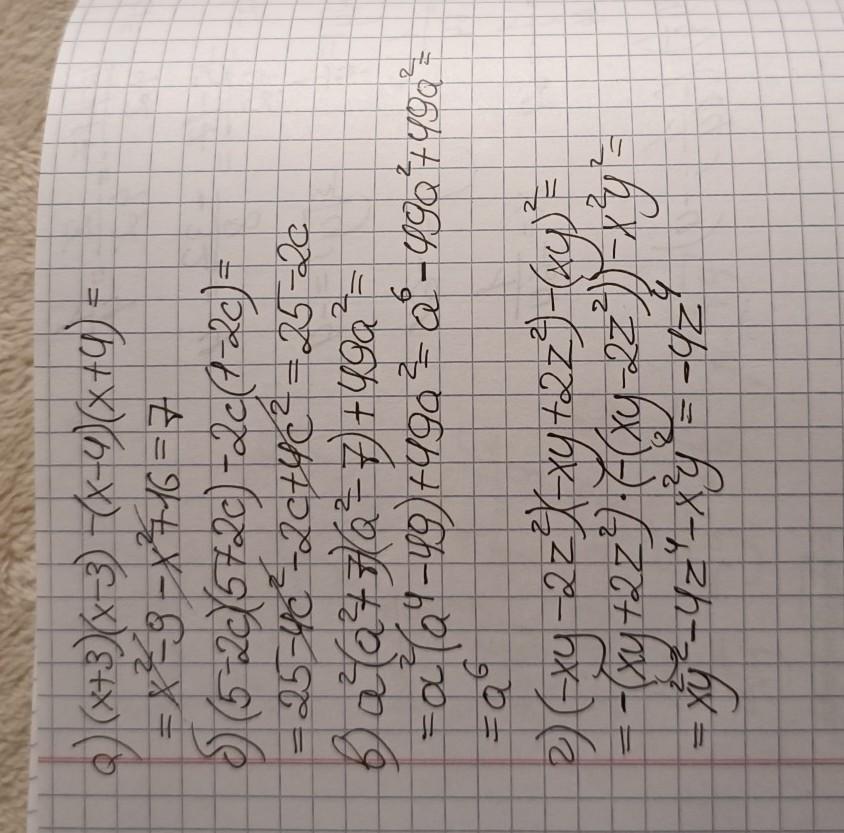 а) (x+3)(x-3)-(x-4)(x+4)=
=x²-9-x²+16=7
б) (5-2c)(5+2c)-2c(1-2c)=
=25-4c²-2c+4c²=25-2c
в) a²(a²+7)(a²-7)+49a²=
=a²(a⁴-49)+49a²=a⁶-49a²+49a²=
=a⁶
г) (-xy-2z²)(-xy+2z²)-(xy)²=
=-(xy+2z²)·(-(xy-2z²))-x²y²=
=x²y²-4z⁴-x²y²=-4z⁴